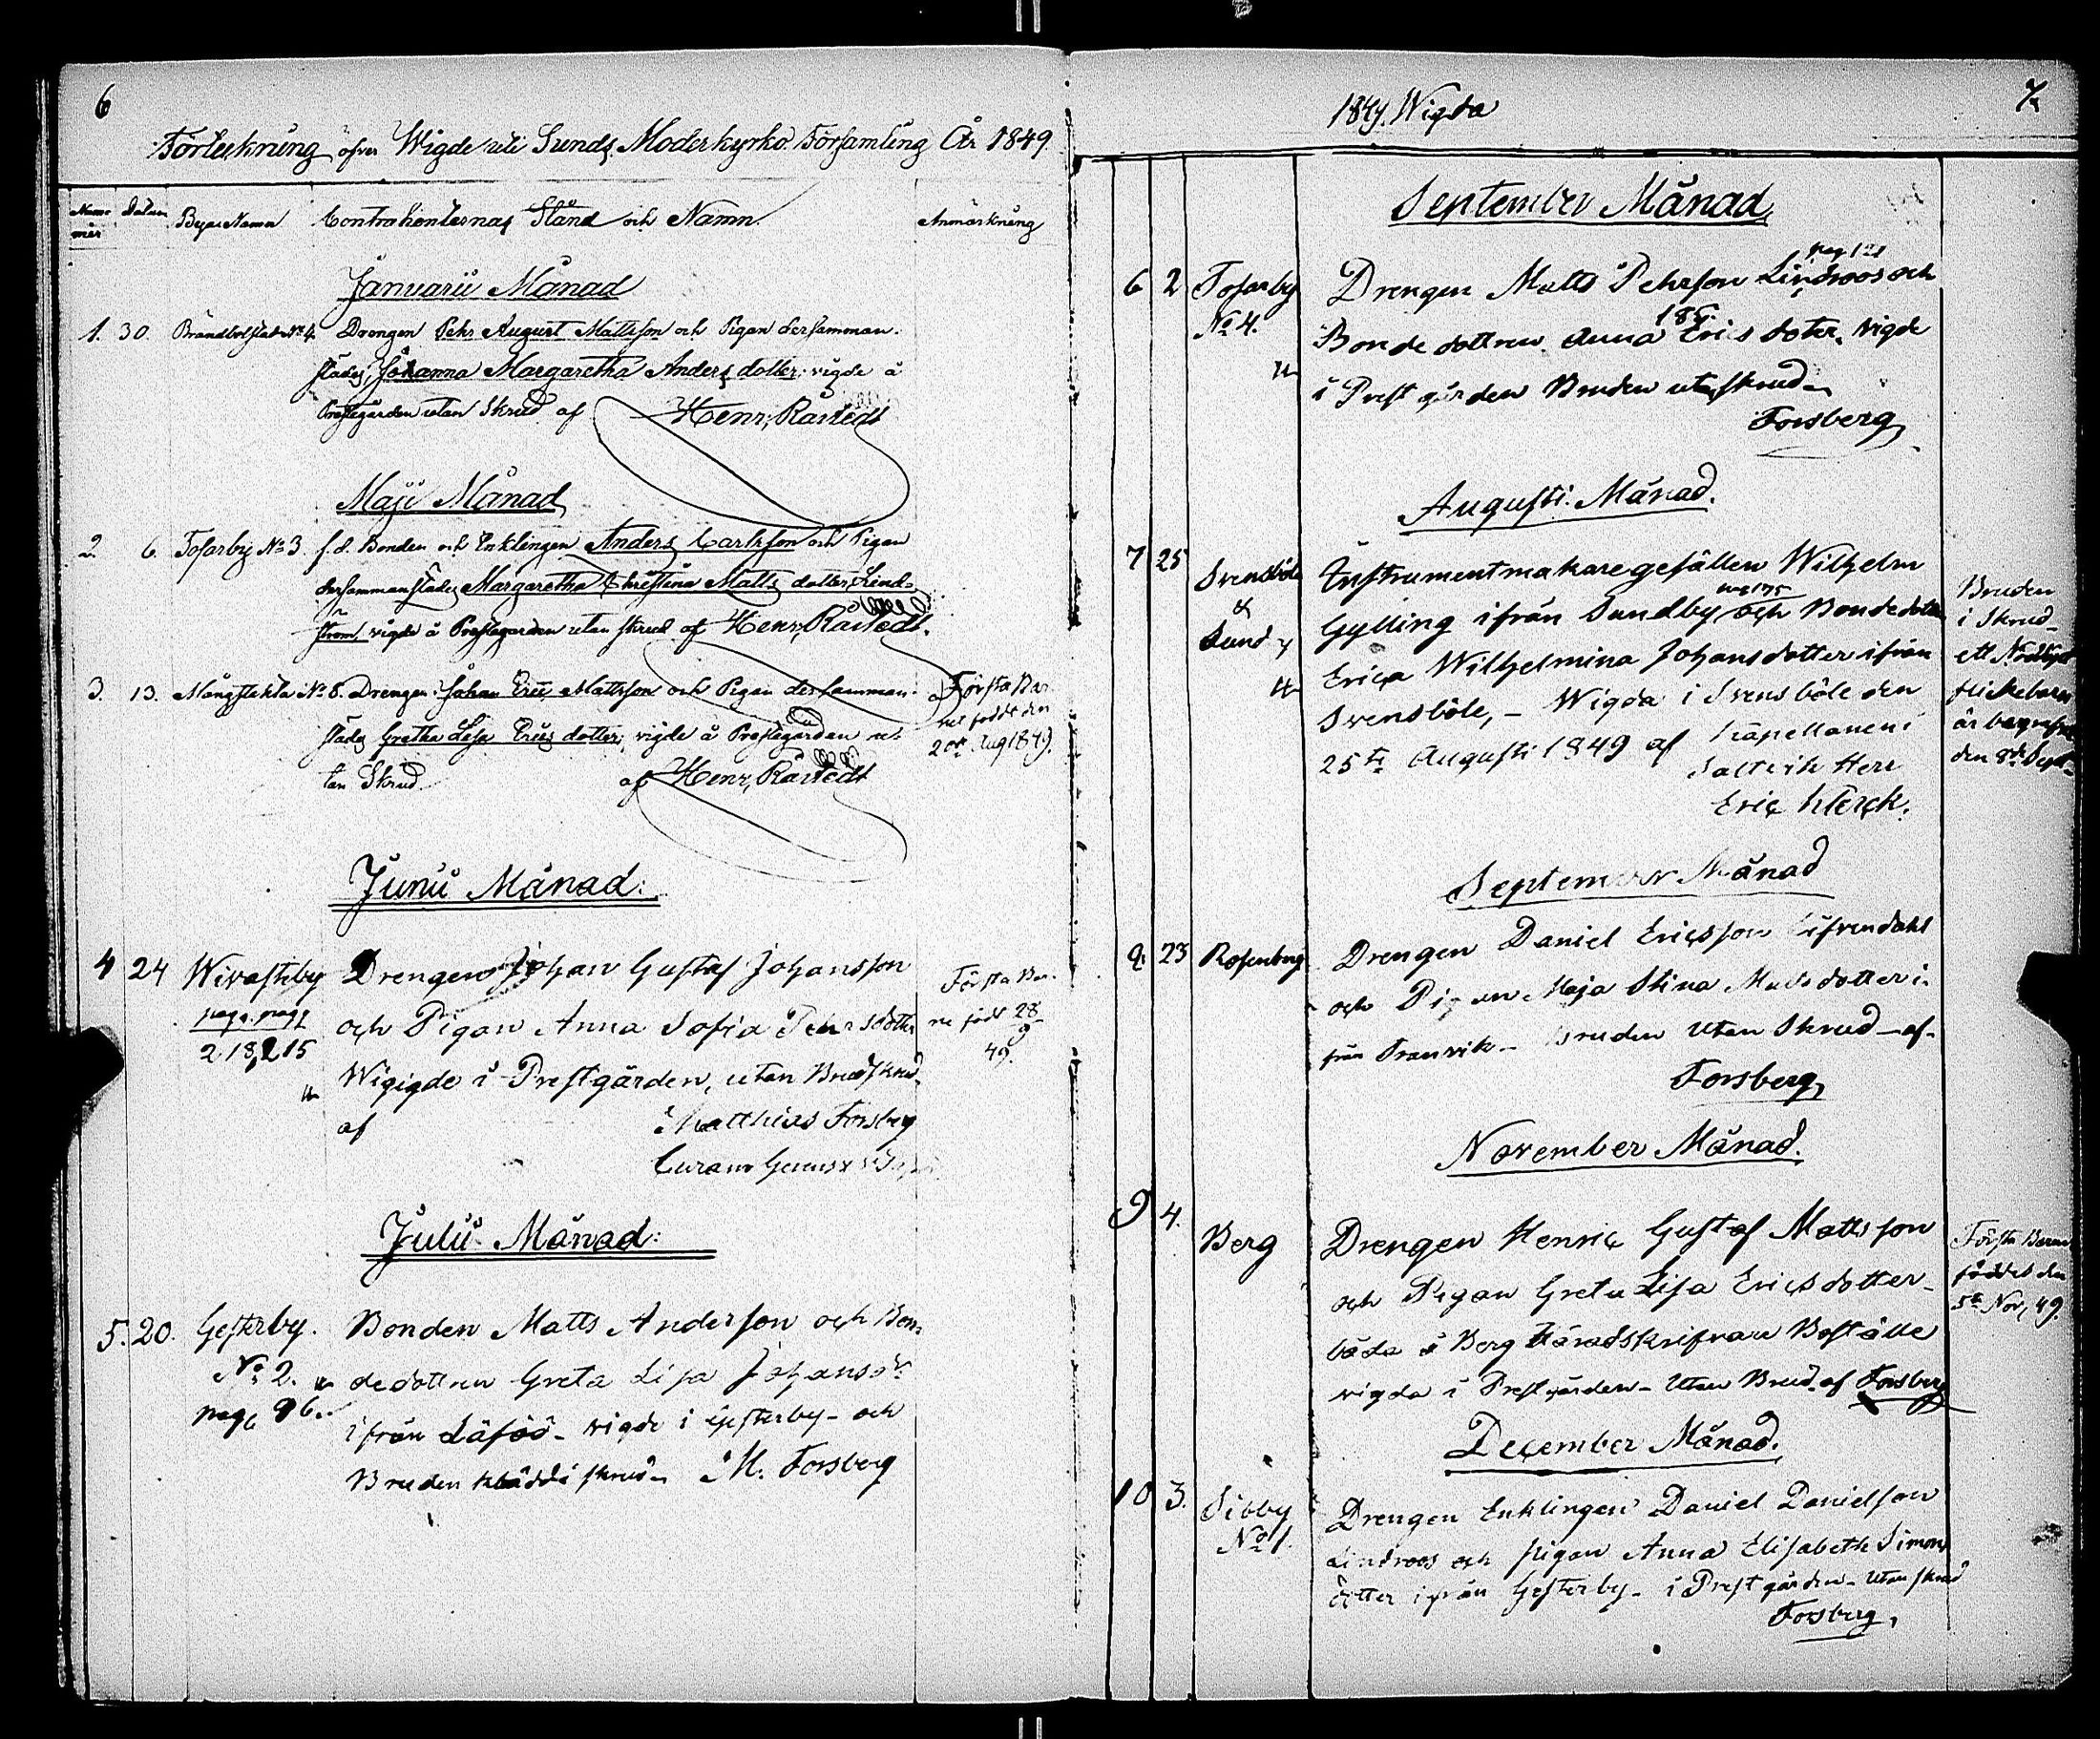 6
Förteckning öfver Wigde uti Sunds Moderkyrko Församling År 1849.
Nummer Datum Byars Namn Contrahenternas Stånd och Namn. Anmärkning
Januarii Månad
1. 30. Brändbolstad No 4. Drengen Pehr August Mattsson och Pigan dersamman-
städes, Johanna Margaretha Anders dotter, vigde å
Prestegården utan Skrud af Henr. Råstedt
Maji Månad
2. 6. Tosarby No 3 f.d. Bonden och Enklingen Anders Carlsson och Pigan
dersammanstädes Margaretha Christina Matts dotter Lind-
ström vigde å Prestegården utan skrud af Henr. Råstedt.
3. 13. Mångstekta No 8. Drengen Johan Eric Mattsson och Pigan dersamman-
städes Gretha Lisa Erics dotter, vigde å Prestegården u-
tan Skrud. af Henr. Råstedt
Första Bar-
net föddt den
20de Aug 1849.
Junii Månad:
4 24 Wivasteby Drengen Johan Gustaf Johansson
pag. pag och Pigan Anna Sofia Pehrsdotter
218, 215 Wigigde i Prestgården, utan Brudskrud
af Matthias Forsberg
Första Bar-
ne födt 28
9
49.
Julii Månad:
5. 20. Gesterby. Bonden Matts Anderson och Bon-
No 2. dedottren Greta Lisa Johansdr
pag 96. ifrån Läfsö - vigde i Gesterby - och
Bruden klädd i skrud - M. Forsberg
7.
1849. Wigda
September Månad
pag 121
6 2 Tosarby Drengen Matts Pehrson Lindroos och
No 4. Bonde dottren Anna Erics doter. vigde
i Prestgården Bruden utan skrud -
Forsberg
Augusti Månad.
7 25 Svensböle Instrumentmakaregesällen Wilhelm
& Gylling ifrån Sundby och Bondedotter
Sund Erica Wilhelmina Johansdotter ifrån
Svensböle, - Wigda i Svensböle den
25te Augusti 1849 af Kapellanen i
Saltvik Herr
Eric Klerck.
Bruden
i Skrud -
ett Nöddöpt
flickebarn
är begrafvet
den 8de Sept
September Månad
8. 23 Rosenberg Drengen Daniel Ericsson
och Pigan Maja Stina Matsdotter i-
från Tranvik - Bruden utan Skrud - af -
Forsberg
November Månad.
9 4. Berg Drengen Henric Gustaf Mattsson
och Pigan Greta Lisa Ericsdotter -
båda å Berg Häradskrifvare Boställe
vigda i Prestgården - Utan Brud. af Forsberg
Första Barnet
föddes den
5te Nov, 49.
December Månad.
10 3. Sibby Drengen Enklingen Daniel Danielson
No 1. Lindroos och pigan Anna Elisabeth Simons
dotter ifrån Gesterby - i Prestgården - Utan skrud
Forsberg,